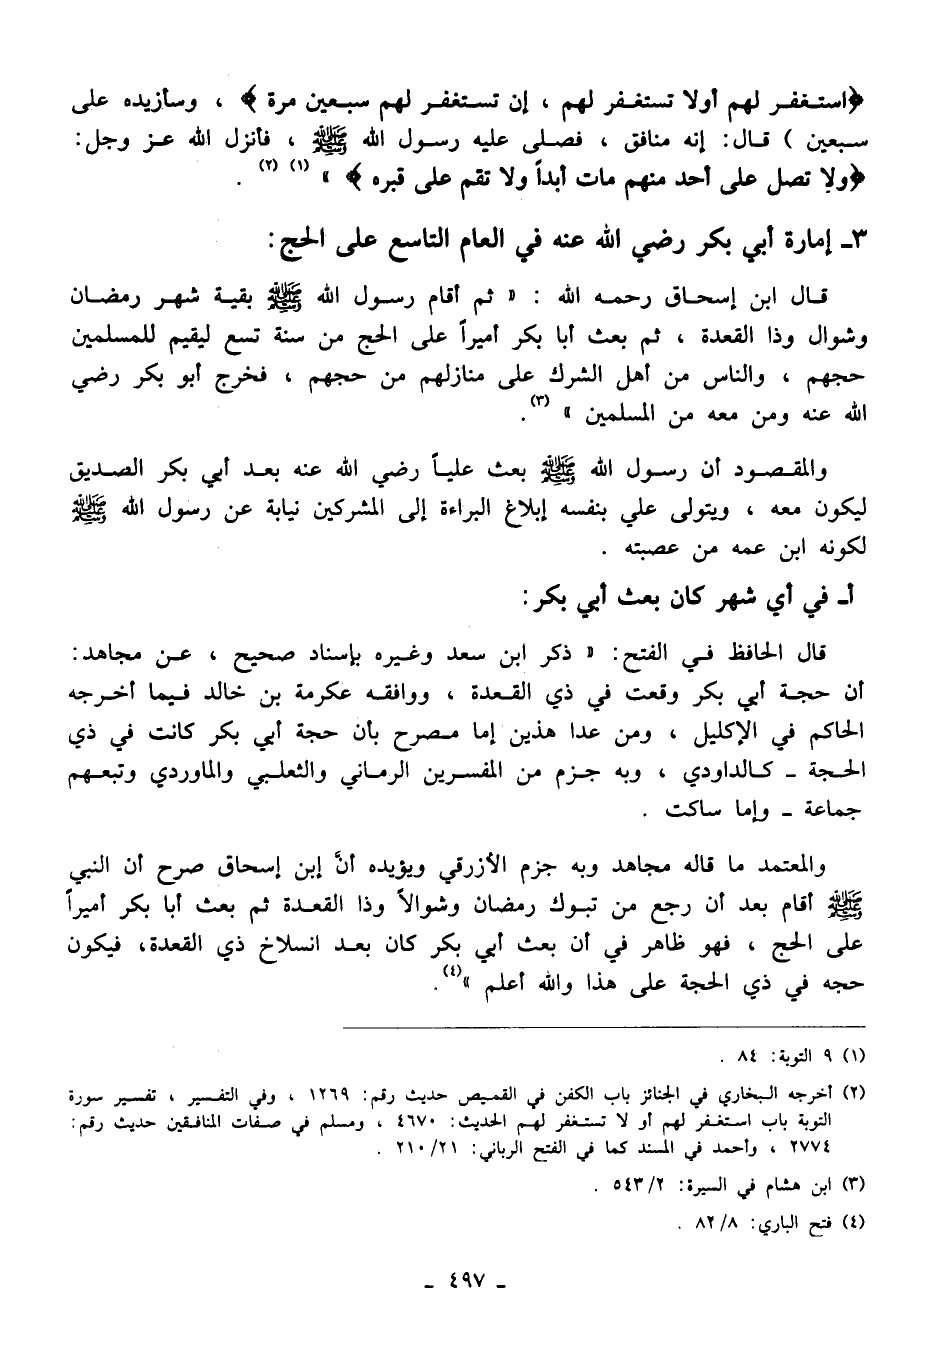 ﴿استغفر لهم أولا تستغفر لهم ، إن تستغفر لهم سبعين مرة ﴾ ، وسأزيده على
سبعين ) قال: إنه منافق ، فصلى عليه رسول الله ﷺ ، فأنزل الله عز وجل:
﴿ولا تصل على أحد منهم مات أبداً ولا تقم على قبره ﴾ » (١) (٢) .
٣ـ إمارة أبي بكر رضي الله عنه في العام التاسع على الحج:
قال ابن إسحاق رحمه الله : « ثم أقام رسول الله ﷺ بقية شهر رمضان
وشوال وذا القعدة ، ثم بعث أبا بكر أميراً على الحج من سنة تسع ليقيم للمسلمين
حجهم ، والناس من أهل الشرك على منازلهم من حجهم ، فخرج أبو بكر رضي
الله عنه ومن معه من المسلمين » (٣).
والمقصود أن رسول الله ﷺ بعث علياً رضي الله عنه بعد أبي بكر الصديق
ليكون معه ، ويتولى علي بنفسه إبلاغ البراءة إلى المشركين نيابة عن رسول الله ﷺ
لكونه ابن عمه من عصبته .
أـ في أي شهر كان بعث أبي بكر:
قال الحافظ في الفتح: « ذكر ابن سعد وغيره بإسناد صحيح ، عن مجاهد:
أن حجة أبي بكر وقعت في ذي القعدة ، ووافقه عكرمة بن خالد فيما أخرجه
الحاكم في الإكليل ، ومن عدا هذين إما مصرح بأن حجة أبي بكر كانت في ذي
الحجة ـ كالداودي ، وبه جزم من المفسرين الرماني والثعلبي والماوردي وتبعهم
جماعة ـ وإما ساكت .
والمعتمد ما قاله مجاهد وبه جزم الأزرقي ويؤيده أنَّ إبن إسحاق صرح أن النبي
ﷺ أقام بعد أن رجع من تبوك رمضان وشوالاً وذا القعدة ثم بعث أبا بكر أميراً
على الحج ، فهو ظاهر في أن بعث أبي بكر كان بعد انسلاخ ذي القعدة، فيكون
حجه في ذي الحجة على هذا والله أعلم »(٤).
(١) ٩ التوبة: ٨٤ .
(٢) أخرجه البخاري في الجنائز باب الكفن في القميص حديث رقم: ١٢٦٩ ، وفي التفسير ، تفسير سورة
التوبة باب استغفر لهم أو لا تستغفر لهم الحديث: ٤٦٧٠ ، ومسلم في صفات المنافقين حديث رقم:
٢٧٧٤ ، وأحمد في المسند كما في الفتح الرباني: ٢١٠/٢١ .
(٣) ابن هشام في السيرة: ٥٤٣/٢ .
(٤) فتح الباري: ٨٢/٨ .
ـ ٤٩٧ ـ